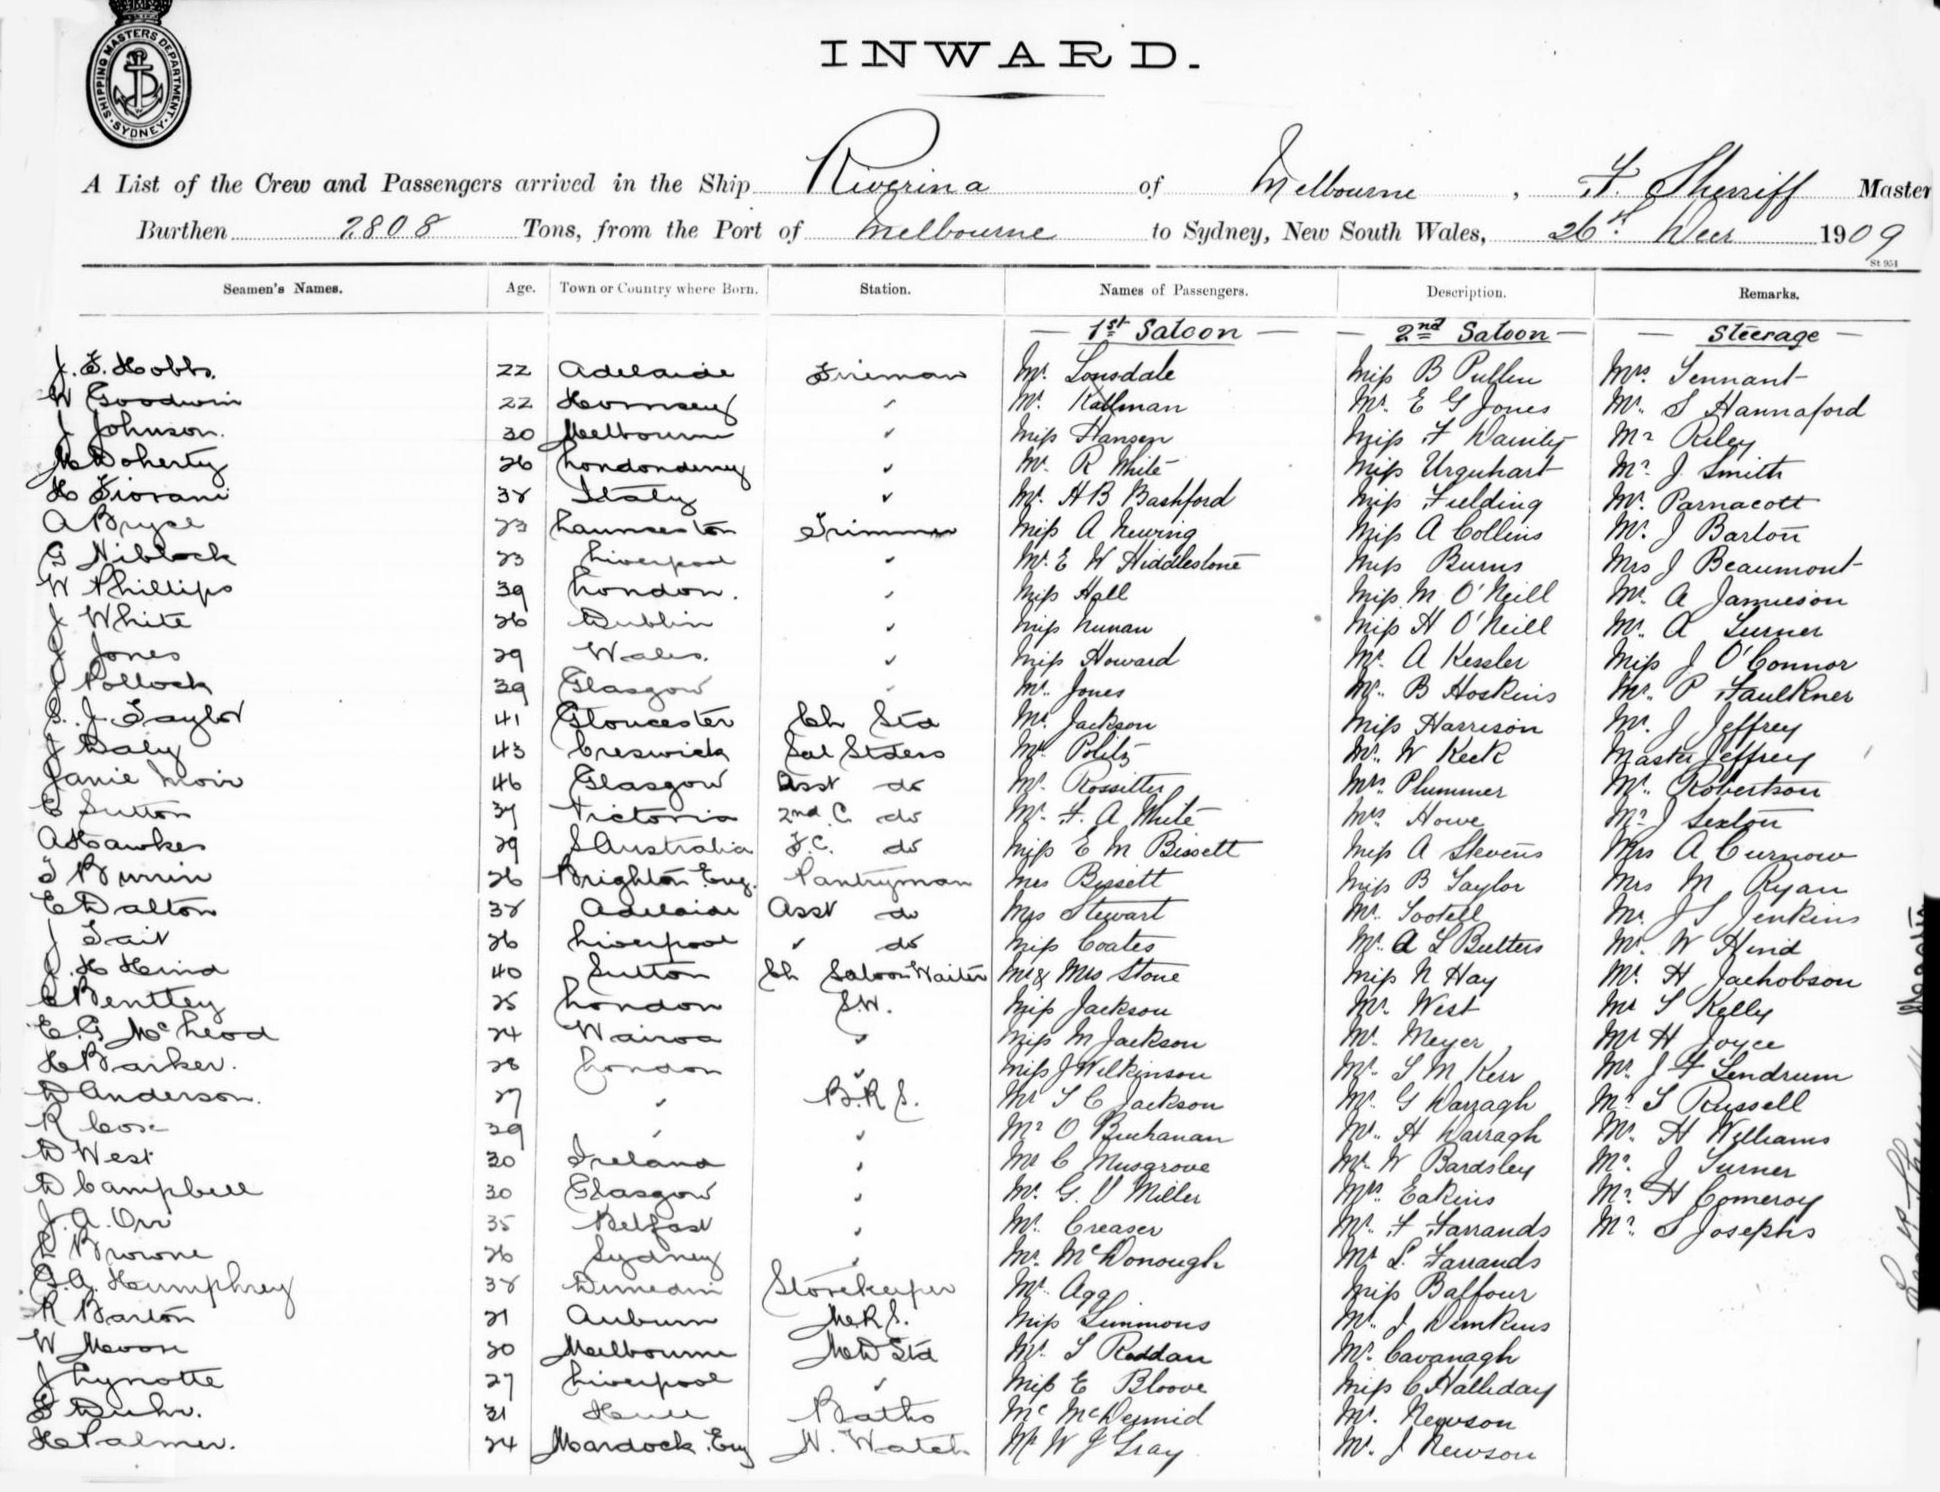 SHIPPING MASTERS DEPARTMENT. SYDNEY.
INWARD.
A List of the Crew and Passengers arrived in the Ship Riverina of Melbourne, F. Sherriff Master
Burthen 2808 Tons, from the Port of Melbourne to Sydney, New South Wales, 26th Decr 1909
St 951
Seamen's Names. Age. Town or Country where Born. Station. Names of Passengers. Description. Remarks.
1st Saloon 2nd Saloon Steerage
J. F. Hobbs. 22 Adelaide Fireman Mr. Lonsdale Miss B Pullen Mrs. Tennant
W Goodwin 22 Hornsey " Mr. Kallman Mr. E G Jones Mr. S Hannaford
J Johnson. 30 Melbourne " Miss Hansen Miss F Mr Riley
M Doherty 26 Londonderry " Mr. R White Miss Urquhart Mr. J Smith
H Fiorani 38 Italy " Mr. H B Bashford Miss Fielding Mr. Parnacott
A Bryse 23 Launceston Trimmer Miss A Newing Miss A Collins Mr. J Barton
G Niblock 23 Liverpool " Mr. E W Hiddlestone Miss Burns Mrs J Beaumont
W Phillips 39 London. " Miss Hall Miss M O'Neill Mr. A Jamieson
J White 26 Dublin " Miss Nunan Miss H O'Neill Mr. A Turner
J Jones 29 Wales. " Miss Howard Mr. A Kessler Miss J O'Connor
J Pollock 39 Glasgow " Mr. Jones Mr. B Hoskins Mr. P Faulkner
S. J. Taylor 41 Gloucester Ch Std Mr. Jackson Miss Harrison Mr. J Jeffrey
J Daly 43 Creswick Sal Stdess Mr. Politz Mr. W Keek Master Jeffrey
Janie Moir 46 Glasgow Asst do Mr. Rossitter Mrs Plummer Mr. Robertson
E Sutton 37 Victoria 2nd C. do Mr. F. A White Mrs Howe Mr. J Sexton
A Hawkes 29 S Australia F.C. do Miss E M Bissett Miss A Stevens Mrs A Curnow
T Burrin 26 Brighton Eng. Pantryman Mrs Bissett Miss B Taylor Mrs M Ryan
E Dalton 38 Adelaide Asst do Mrs Stewart Mr. Tootell Mr. J S Jenkins
J Tait 26 Liverpool " do Miss Coates Mr. A L Butters Mr. W Hind
J. H Heind 40 Sutton Ch Saloon Waiter Mr & Mrs Stone Miss N Hay Mr. H Jachobson
C Bentley 25 London S.W. Miss Jackson Mr. West Mr S Kelly
E. G McLeod 24 Wairoa " Miss M Jackson Mr. Meyer Mr H Joyce
H Barker. 28 London " Miss J Wilkinson Mr. S M Kerr Mr. J F Lendrum
D Anderson. 27 " B.R S. Mr S C Jackson Mr. G Darragh Mr. S Russell
R 29 " " Mr O Buchanan Mr. H Darragh Mr. H Williams
D West 30 Ireland " Mr C Musgrove Mr. W Bardsley Mr. J Turner
D Campbell 30 Glasgow " Mr. G. V Miller Mrs Eakins Mr. H Comeroy
J. A. Orr 35 Belfast " Mr. Creaser Mr. F Farrands Mr. S Josephs
D Browne 26 Sydney " Mr. McDonough Mr. L. Farrands
G. A. Humphrey 38 Dunedin Storekeeper Mr. Agg Miss Balfour
R Barton 21 Auburn M.R S. Miss Simmons Mr. J
W Moon 20 Melbourne M D Std Mr. S Reddan Mr. Cavanagh
J Lynotte 27 Liverpool " Miss E Bloove Miss C Halliday
F Duhr. 31 Hull Baths Mr McDermid Mr. Newson
H Palmer. 24 Mardock. Eng N. Watch Mr W J Gray Mr. J Newson